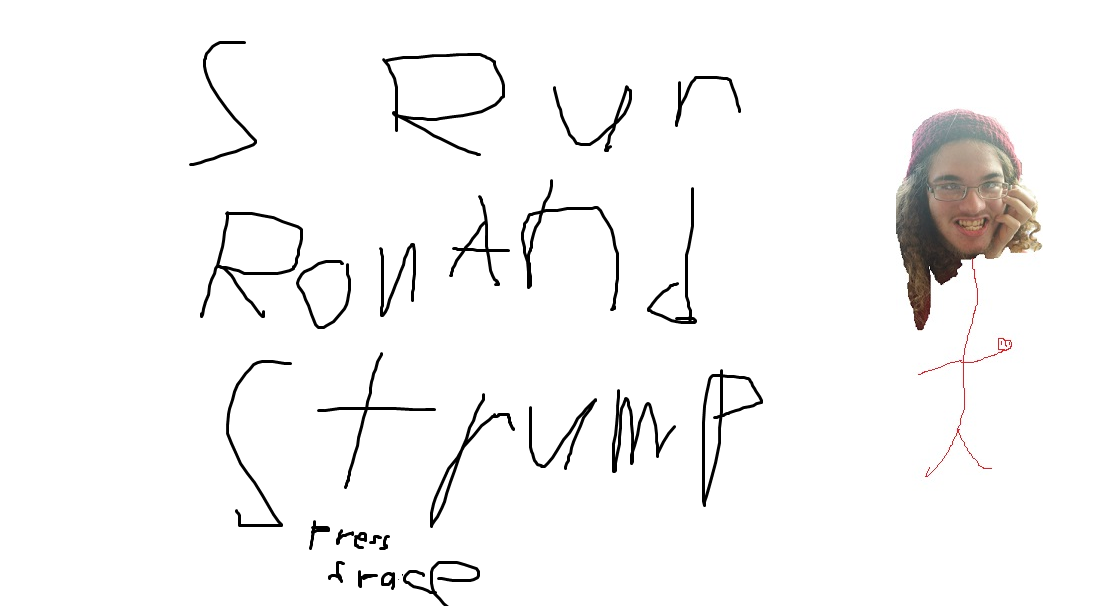 S Run
RonAnd
Strump
press
srace